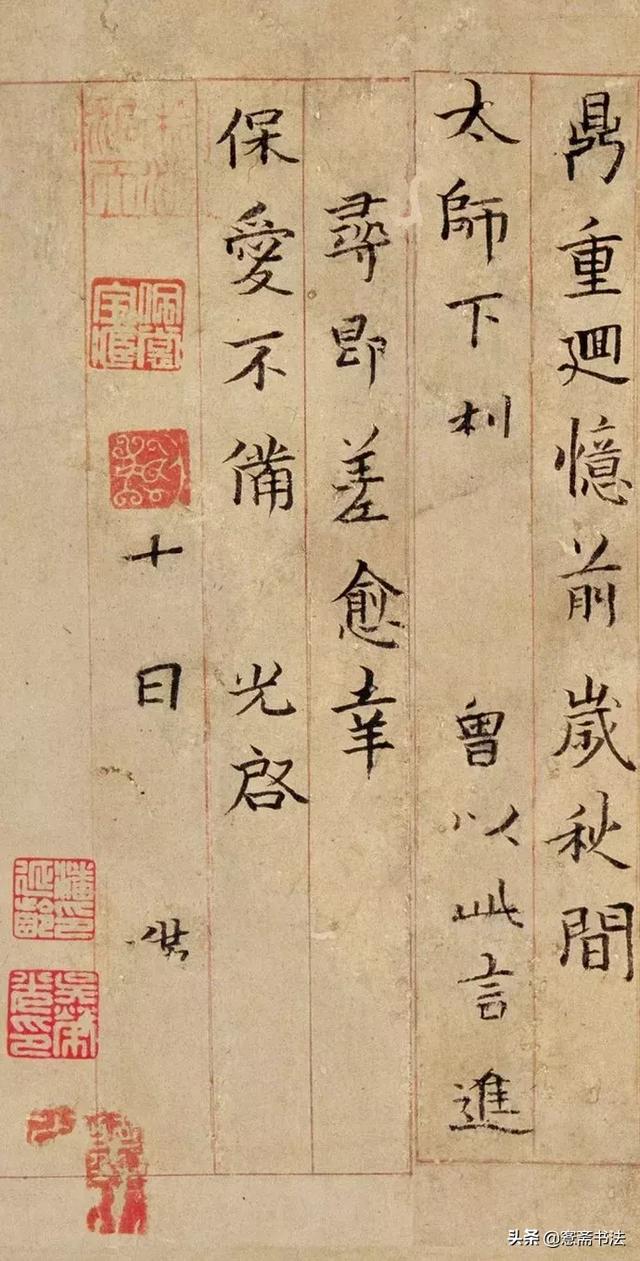 鼎重迴憶前歲秋間
太師下利 曾以此言進
尋即差愈幸
保愛不備 光啓
十日
头条 @愙斋书法